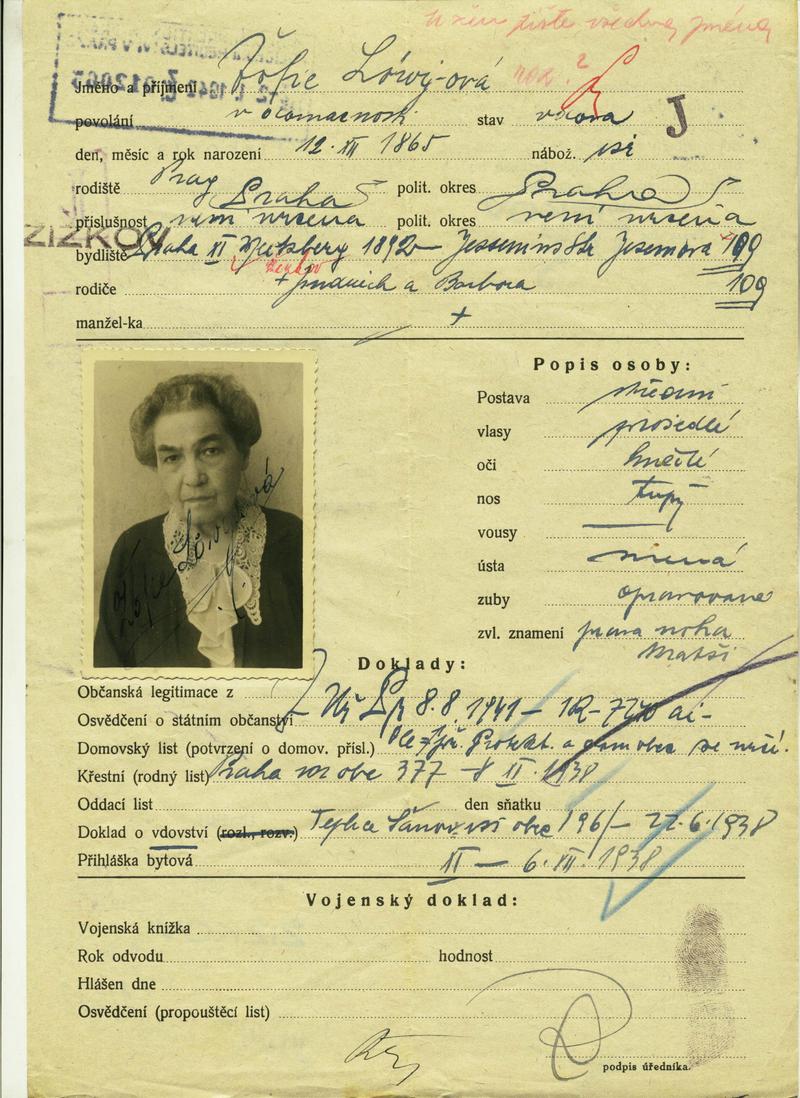 u žen pište všechna jména
Jméno a příjmení Žofie Löwy-ová roz. ?
povolání v domácnosti stav vdova J
den, měsíc a rok narození 12. XII 1865 nábož. isr
Prag
rodiště Praha 5 polit. okres Praha 5
příslušnost není určena polit. okres není určena
ŽIŽKOV
bydliště Praha XI 1892 Jesseniova 109
rodiče + Jindřich a Barbora 109
manžel-ka +
Popis osoby:
Postava střední
vlasy prošedlé
oči hnědé
nos tupý
vousy —
ústa
zuby opravované
zvl. znamení pravá noha
kratší
Žofie Löwyová
Doklady:
Občanská legitimace z
Osvědčení o státním občanství 8.8.1941
Domovský list (potvrzení o domov. přísl.)
Křestní (rodný list) Praha obec 377 II. 1938
Oddací list den sňatku
Doklad o vdovství (rozl., rozv.) Teplice Šanov obec 196/— 22.6.1938
Přihláška bytová XI — 6. VII. 1938
Vojenský doklad:
Vojenská knížka
Rok odvodu hodnost
Hlášen dne
Osvědčení (propouštěcí list)
podpis úředníka.